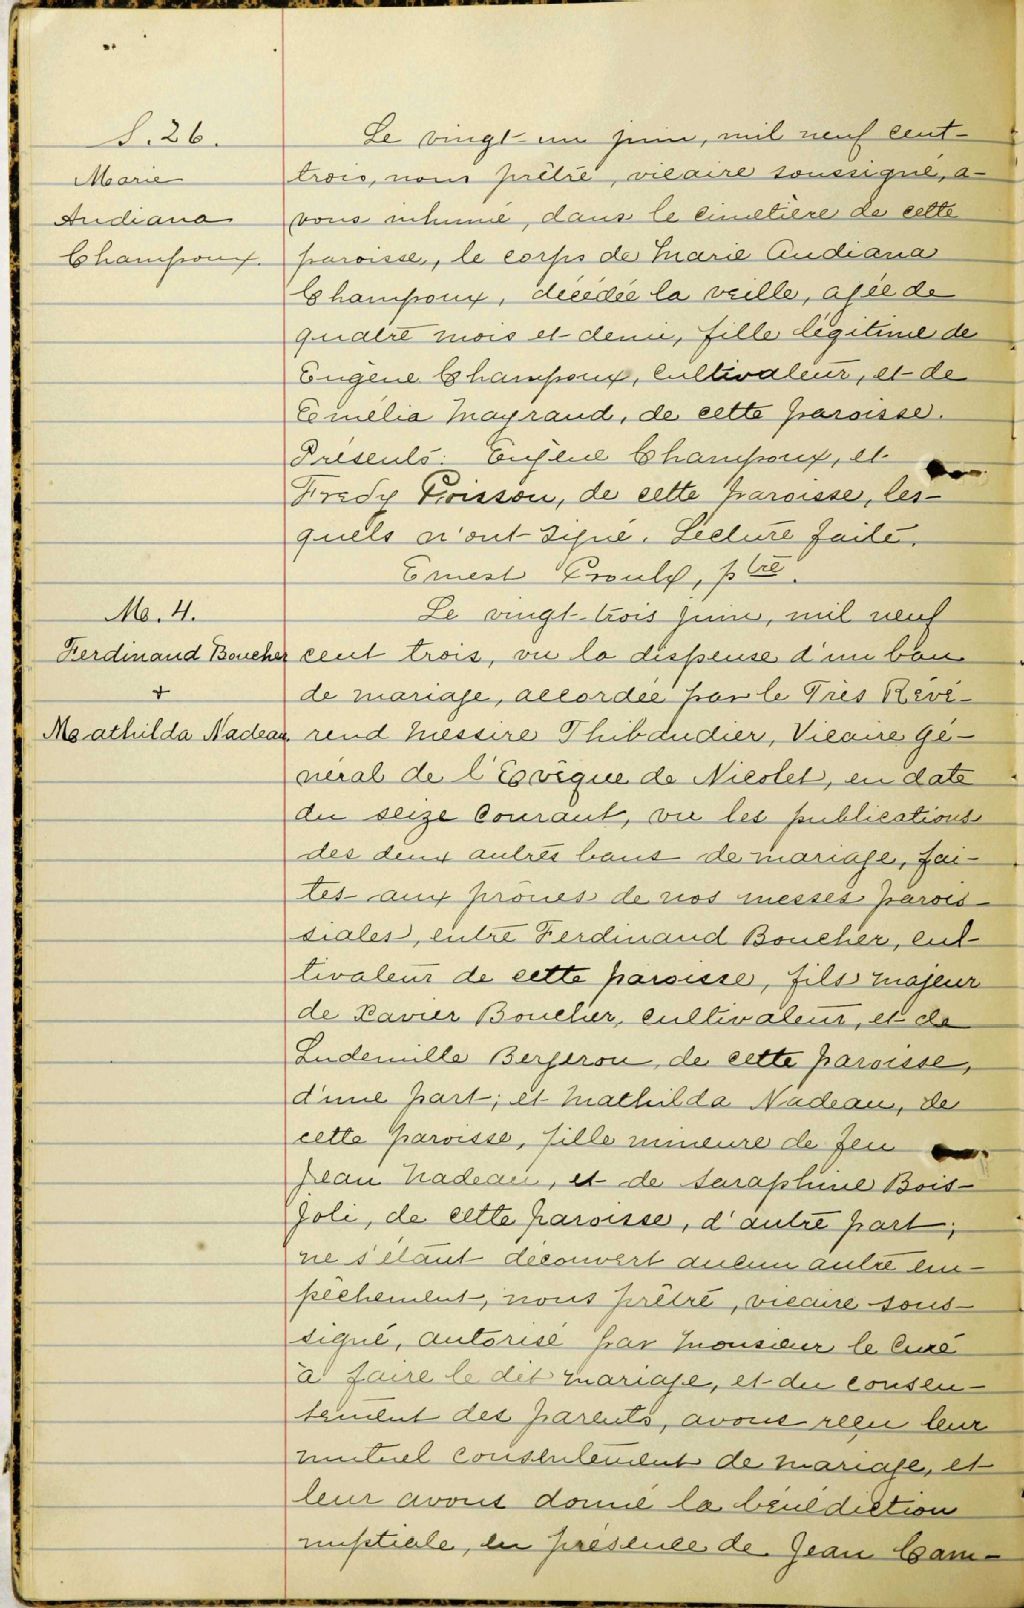 S. 26.
Marie
Audiana
Champoux.
Le vingt-un juin, mil neuf cent-
trois, nous prêtre, vicaire soussigné, a-
vons inhumé, dans le cimetière de cette
paroisse, le corps de Marie Audiana
Champoux, décédée la veille, agée de
quatre mois et demi, fille légitime de
Eugène Champoux, cultivateur, et de
Emélia Mayrand, de cette paroisse.
Présents: Eugène Champoux, et
Fredy Poisson, de cette paroisse, les-
quels n'ont signé. Lecture faite.
Ernest Proulx, ptre.
M. 4.
Ferdinand Boucher
+
Mathilda Nadeau.
Le vingt-trois juin, mil neuf
cent trois, vu la dispense d'un ban
de mariage, accordée par le Très Révé-
rend Messire Thibaudier, Vicaire Gé-
néral de l'Evêque de Nicolet, en date
du seize courant, vu les publications
des deux autres bans de mariage, fai-
tes aux prônes de nos messes parois-
siales, entre Ferdinand Boucher, cul-
tivateur de cette paroisse, fils majeur
de Xavier Boucher, cultivateur, et de
Ludemille Bergeron, de cette paroisse,
d'une part; et Mathilda Nadeau, de
cette paroisse, fille mineure de feu
Jean Nadeau, et de Saraphine Bois-
joli, de cette paroisse, d'autre part;
ne s'étant découvert aucun autre em-
pêchement, nous prêtre, vicaire sous-
signé, autorisé par Monsieur le Curé
à faire le dit mariage, et du consen-
tement des parents, avons reçu leur
mutuel consentement de mariage, et
leur avons donné la bénédiction
nuptiale, en présence de Jean Cam-